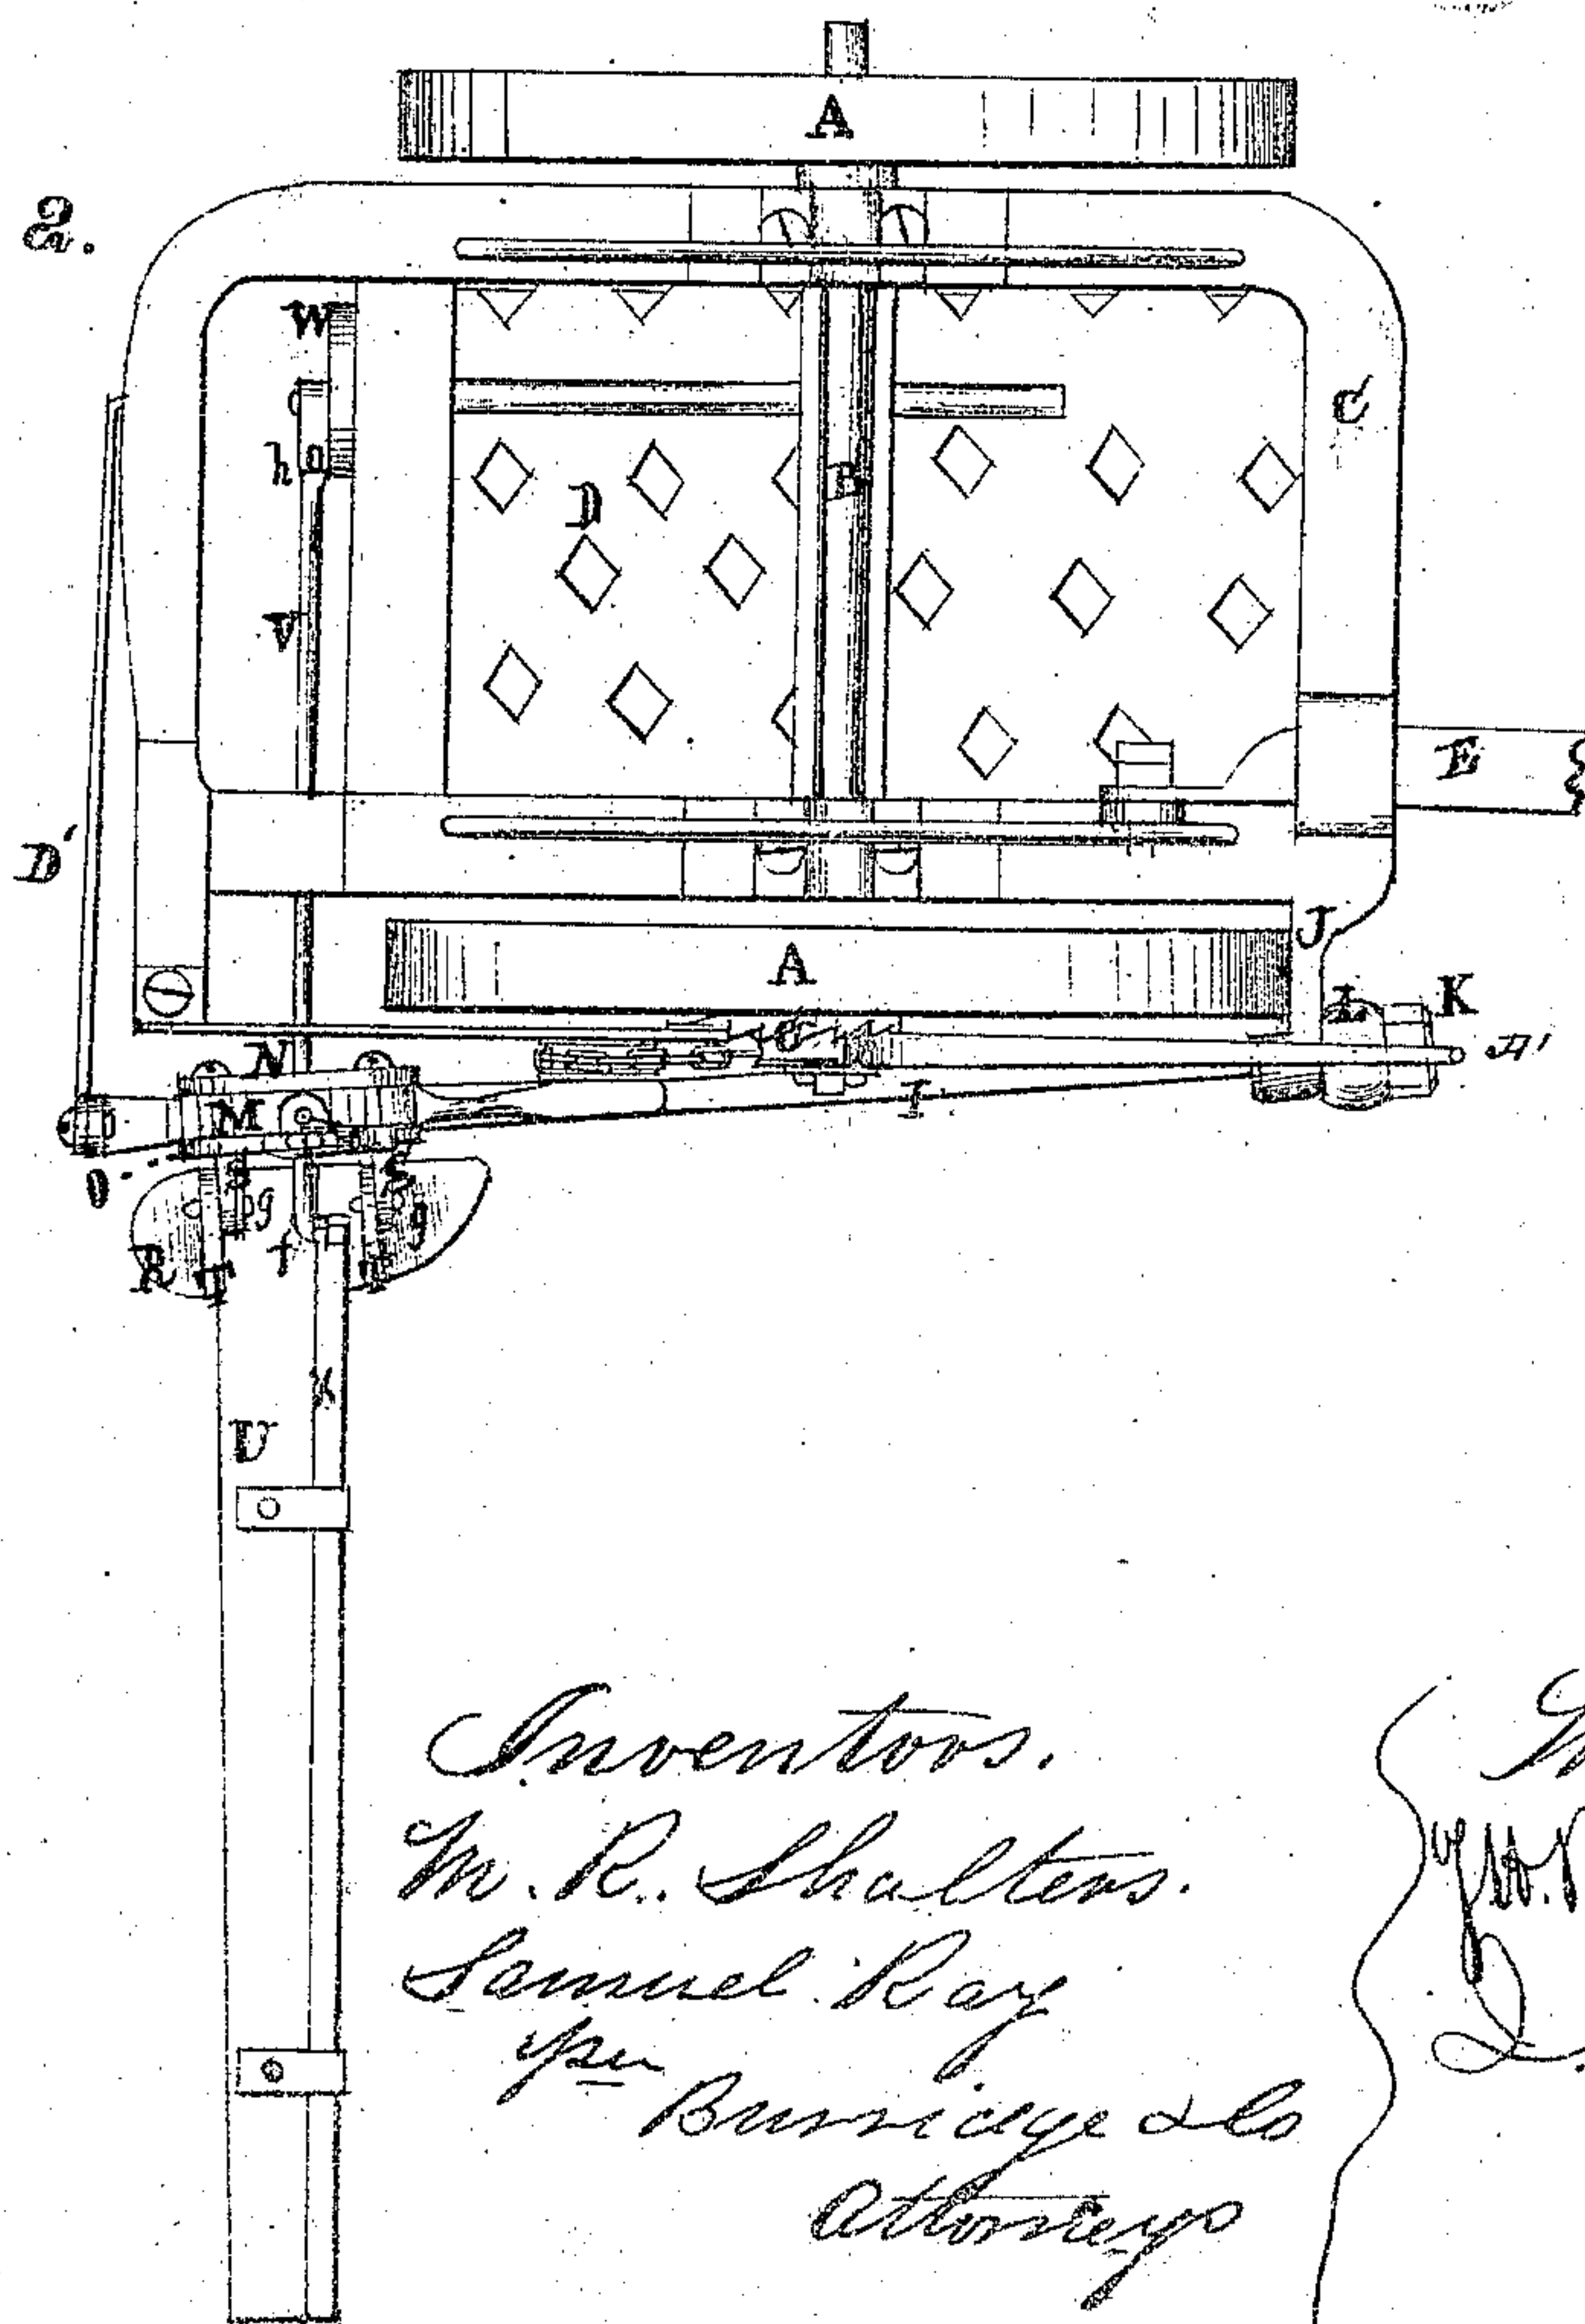 2.
A
W
C
h
D
B
V
E
D'
J
A
L
K
A'
N
M
I
O
S
S
g
g
R
T
f
T
X
U
Inventors.
M. R. Shalters.
Samuel Ray
per
Burridge & Co
Attorneys